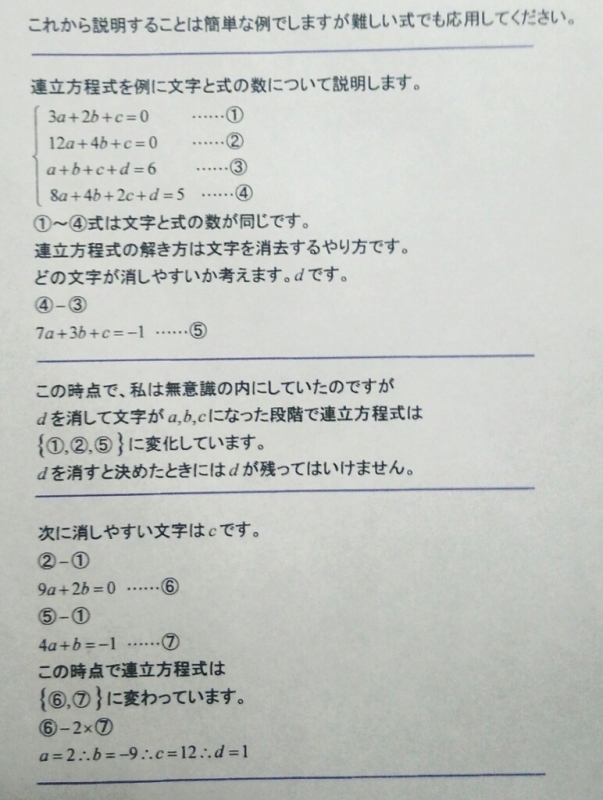 これから説明することは簡単な例でしますが難しい式でも応用してください。
連立方程式を例に文字と式の数について説明します。
3a+2b+c=0 ……①
12a+4b+c=0 ……②
a+b+c+d=6 ……③
8a+4b+2c+d=5 ……④
①～④式は文字と式の数が同じです。
連立方程式の解き方は文字を消去するやり方です。
どの文字が消しやすいか考えます。dです。
④−③
7a+3b+c=−1 ……⑤
この時点で、私は無意識の内にしていたのですが
dを消して文字がa,b,cになった段階で連立方程式は
{①,②,⑤}に変化しています。
dを消すと決めたときにはdが残ってはいけません。
次に消しやすい文字はcです。
②−①
9a+2b=0 ……⑥
⑤−①
4a+b=−1 ……⑦
この時点で連立方程式は
{⑥,⑦}に変わっています。
⑥−2×⑦
a=2∴b=−9∴c=12∴d=1